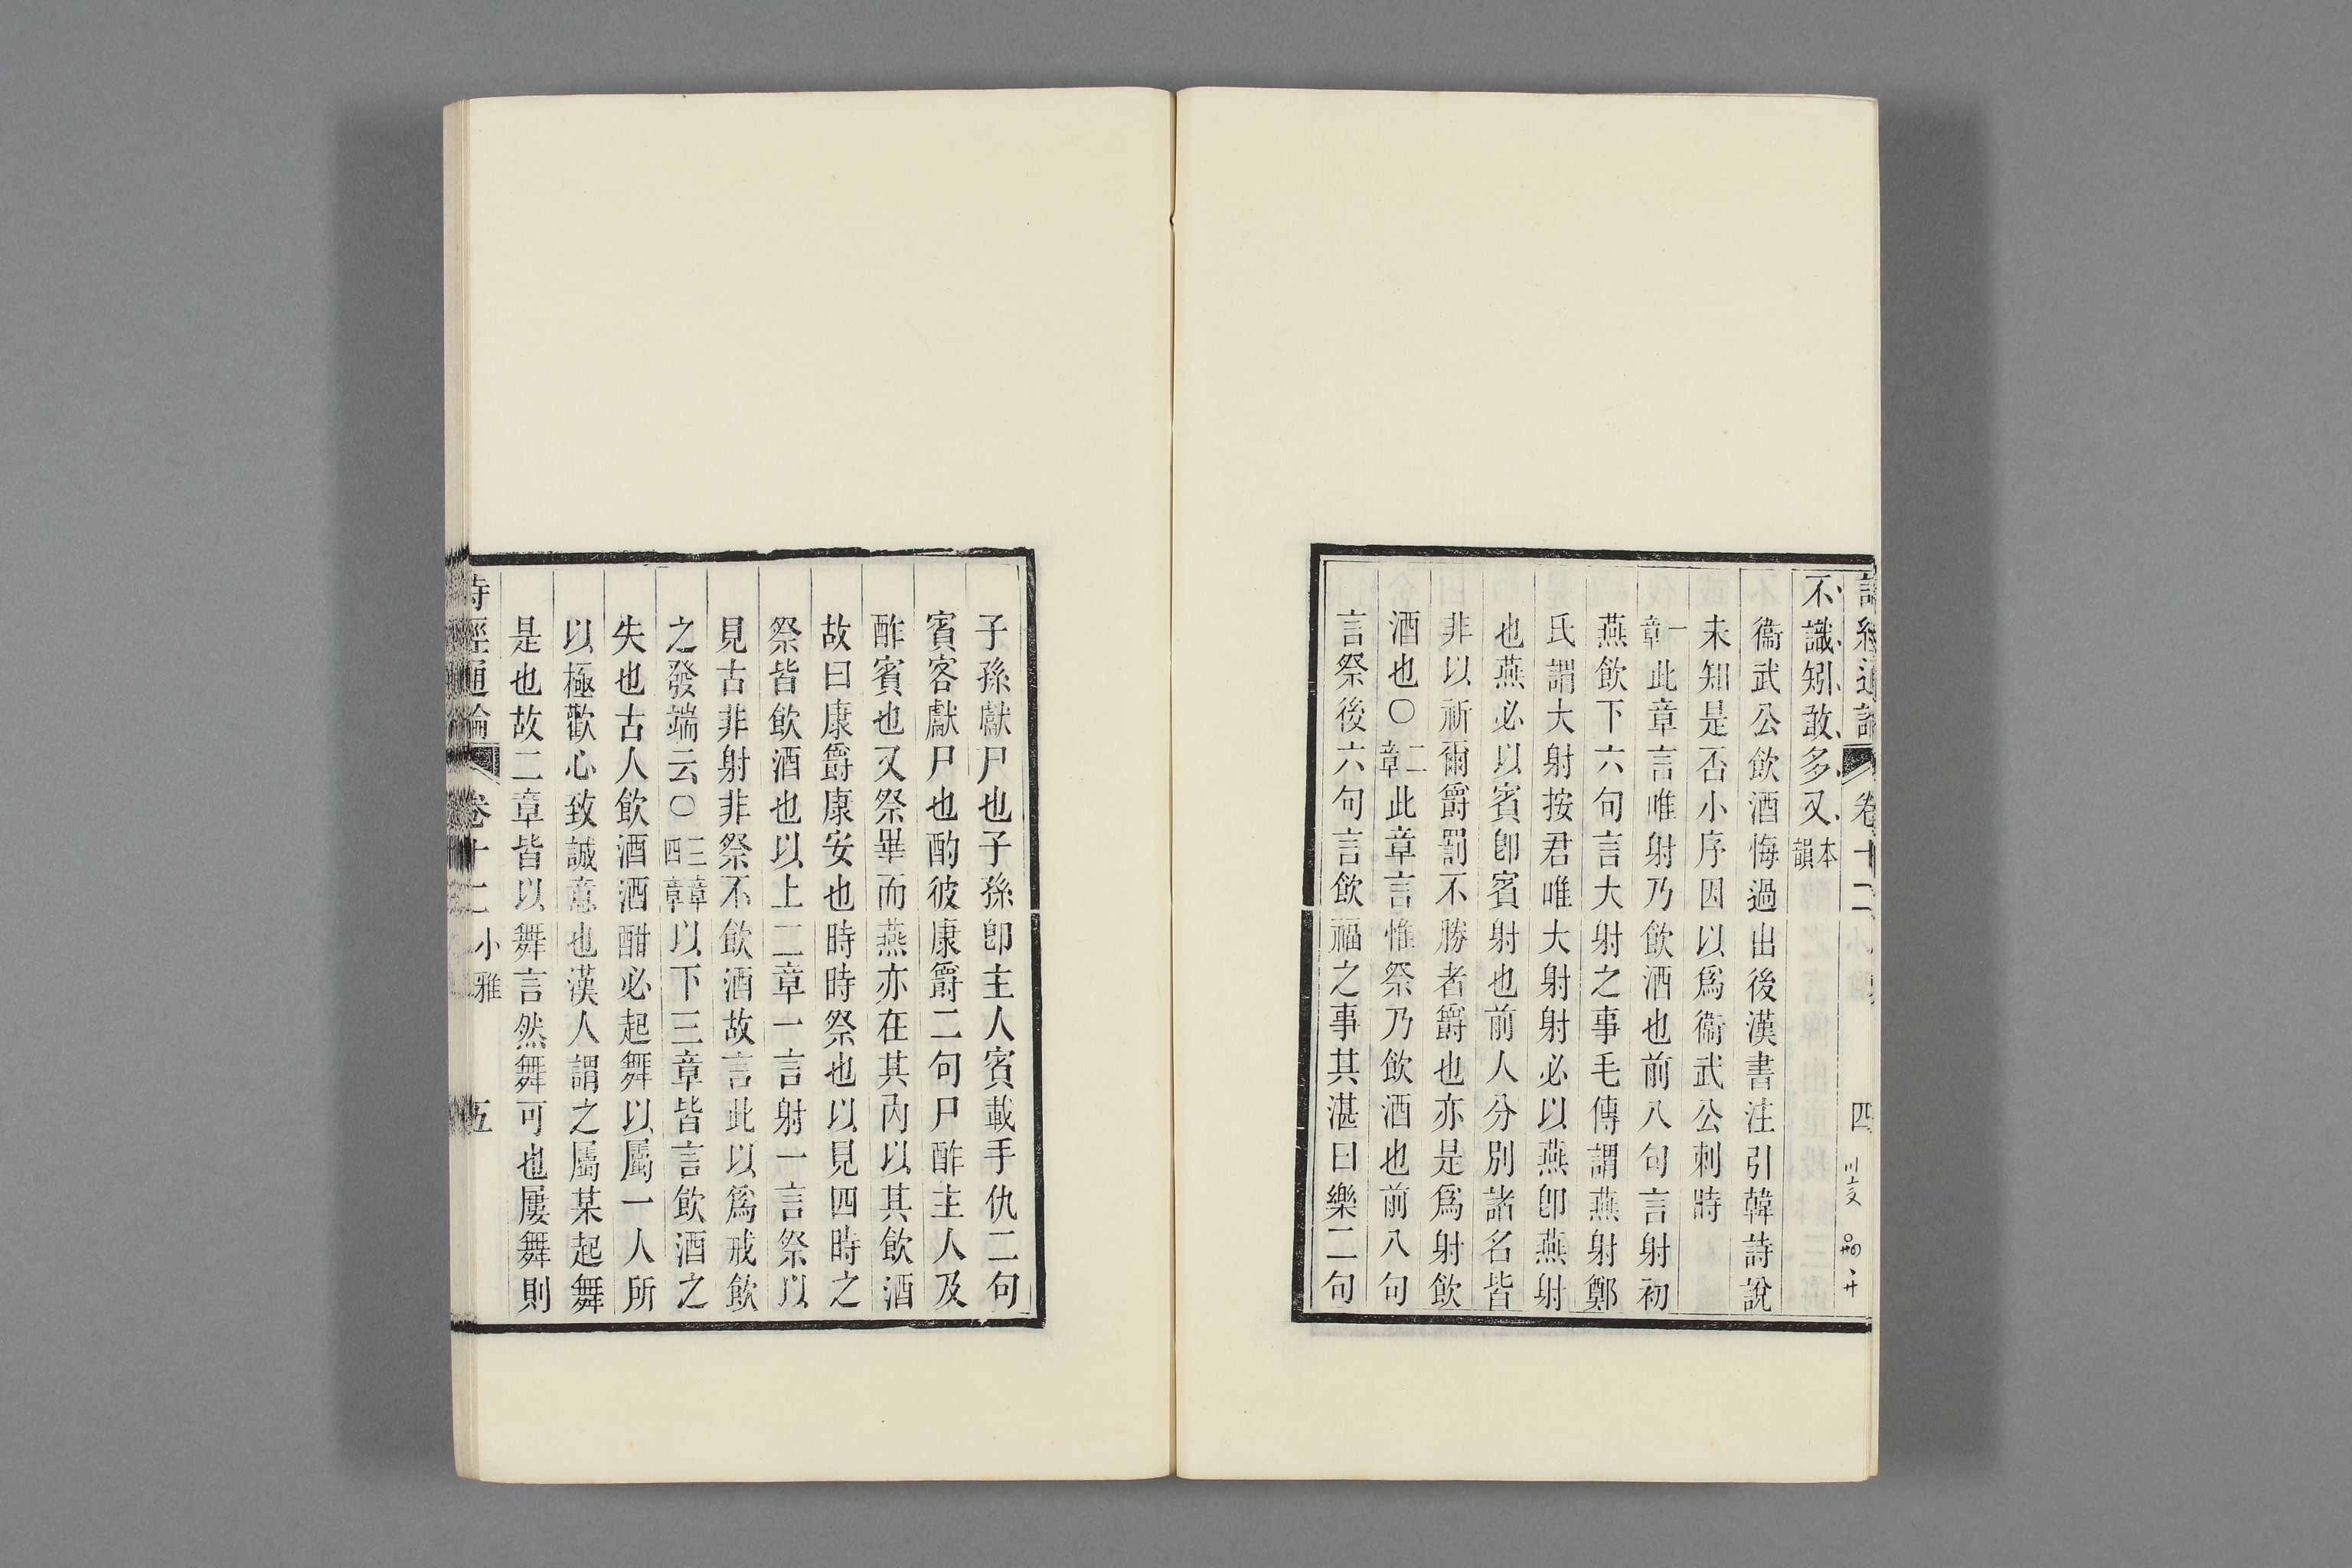 詩經通論 卷十二 四
不識矧敢多又本韻
衞武公飲酒悔過出後漢書注引韓詩說
未知是否小序因以爲衞武公刺時
一章此章言唯射乃飲酒也前八句言射初
燕飲下六句言大射之事毛傳謂燕射鄭
氏謂大射按君唯大射射必以燕卽燕射
也燕必以賓卽賓射也前人分別諸名皆
非以祈爾爵罰不勝者爵也亦是爲射飲
酒也〇二章此章言惟祭乃飲酒也前八句
言祭後六句言飲福之事其湛曰樂二句
子孫獻尸也子孫卽主人賓載手仇二句
賓客獻尸也酌彼康爵二句尸酢主人及
酢賓也又祭畢而燕亦在其內以其飲酒
故曰康爵康安也時時祭也以見四時之
祭皆飲酒也以上二章一言射一言祭以
見古非射非祭不飲酒故言此以爲戒飲
之發端云〇三章四章以下三章皆言飲酒之
失也古人飲酒酒酣必起舞以屬一人所
以極歡心致誠意也漢人謂之屬某起舞
是也故二章皆以舞言然舞可也屢舞則
詩經通論 卷十二 小雅 五